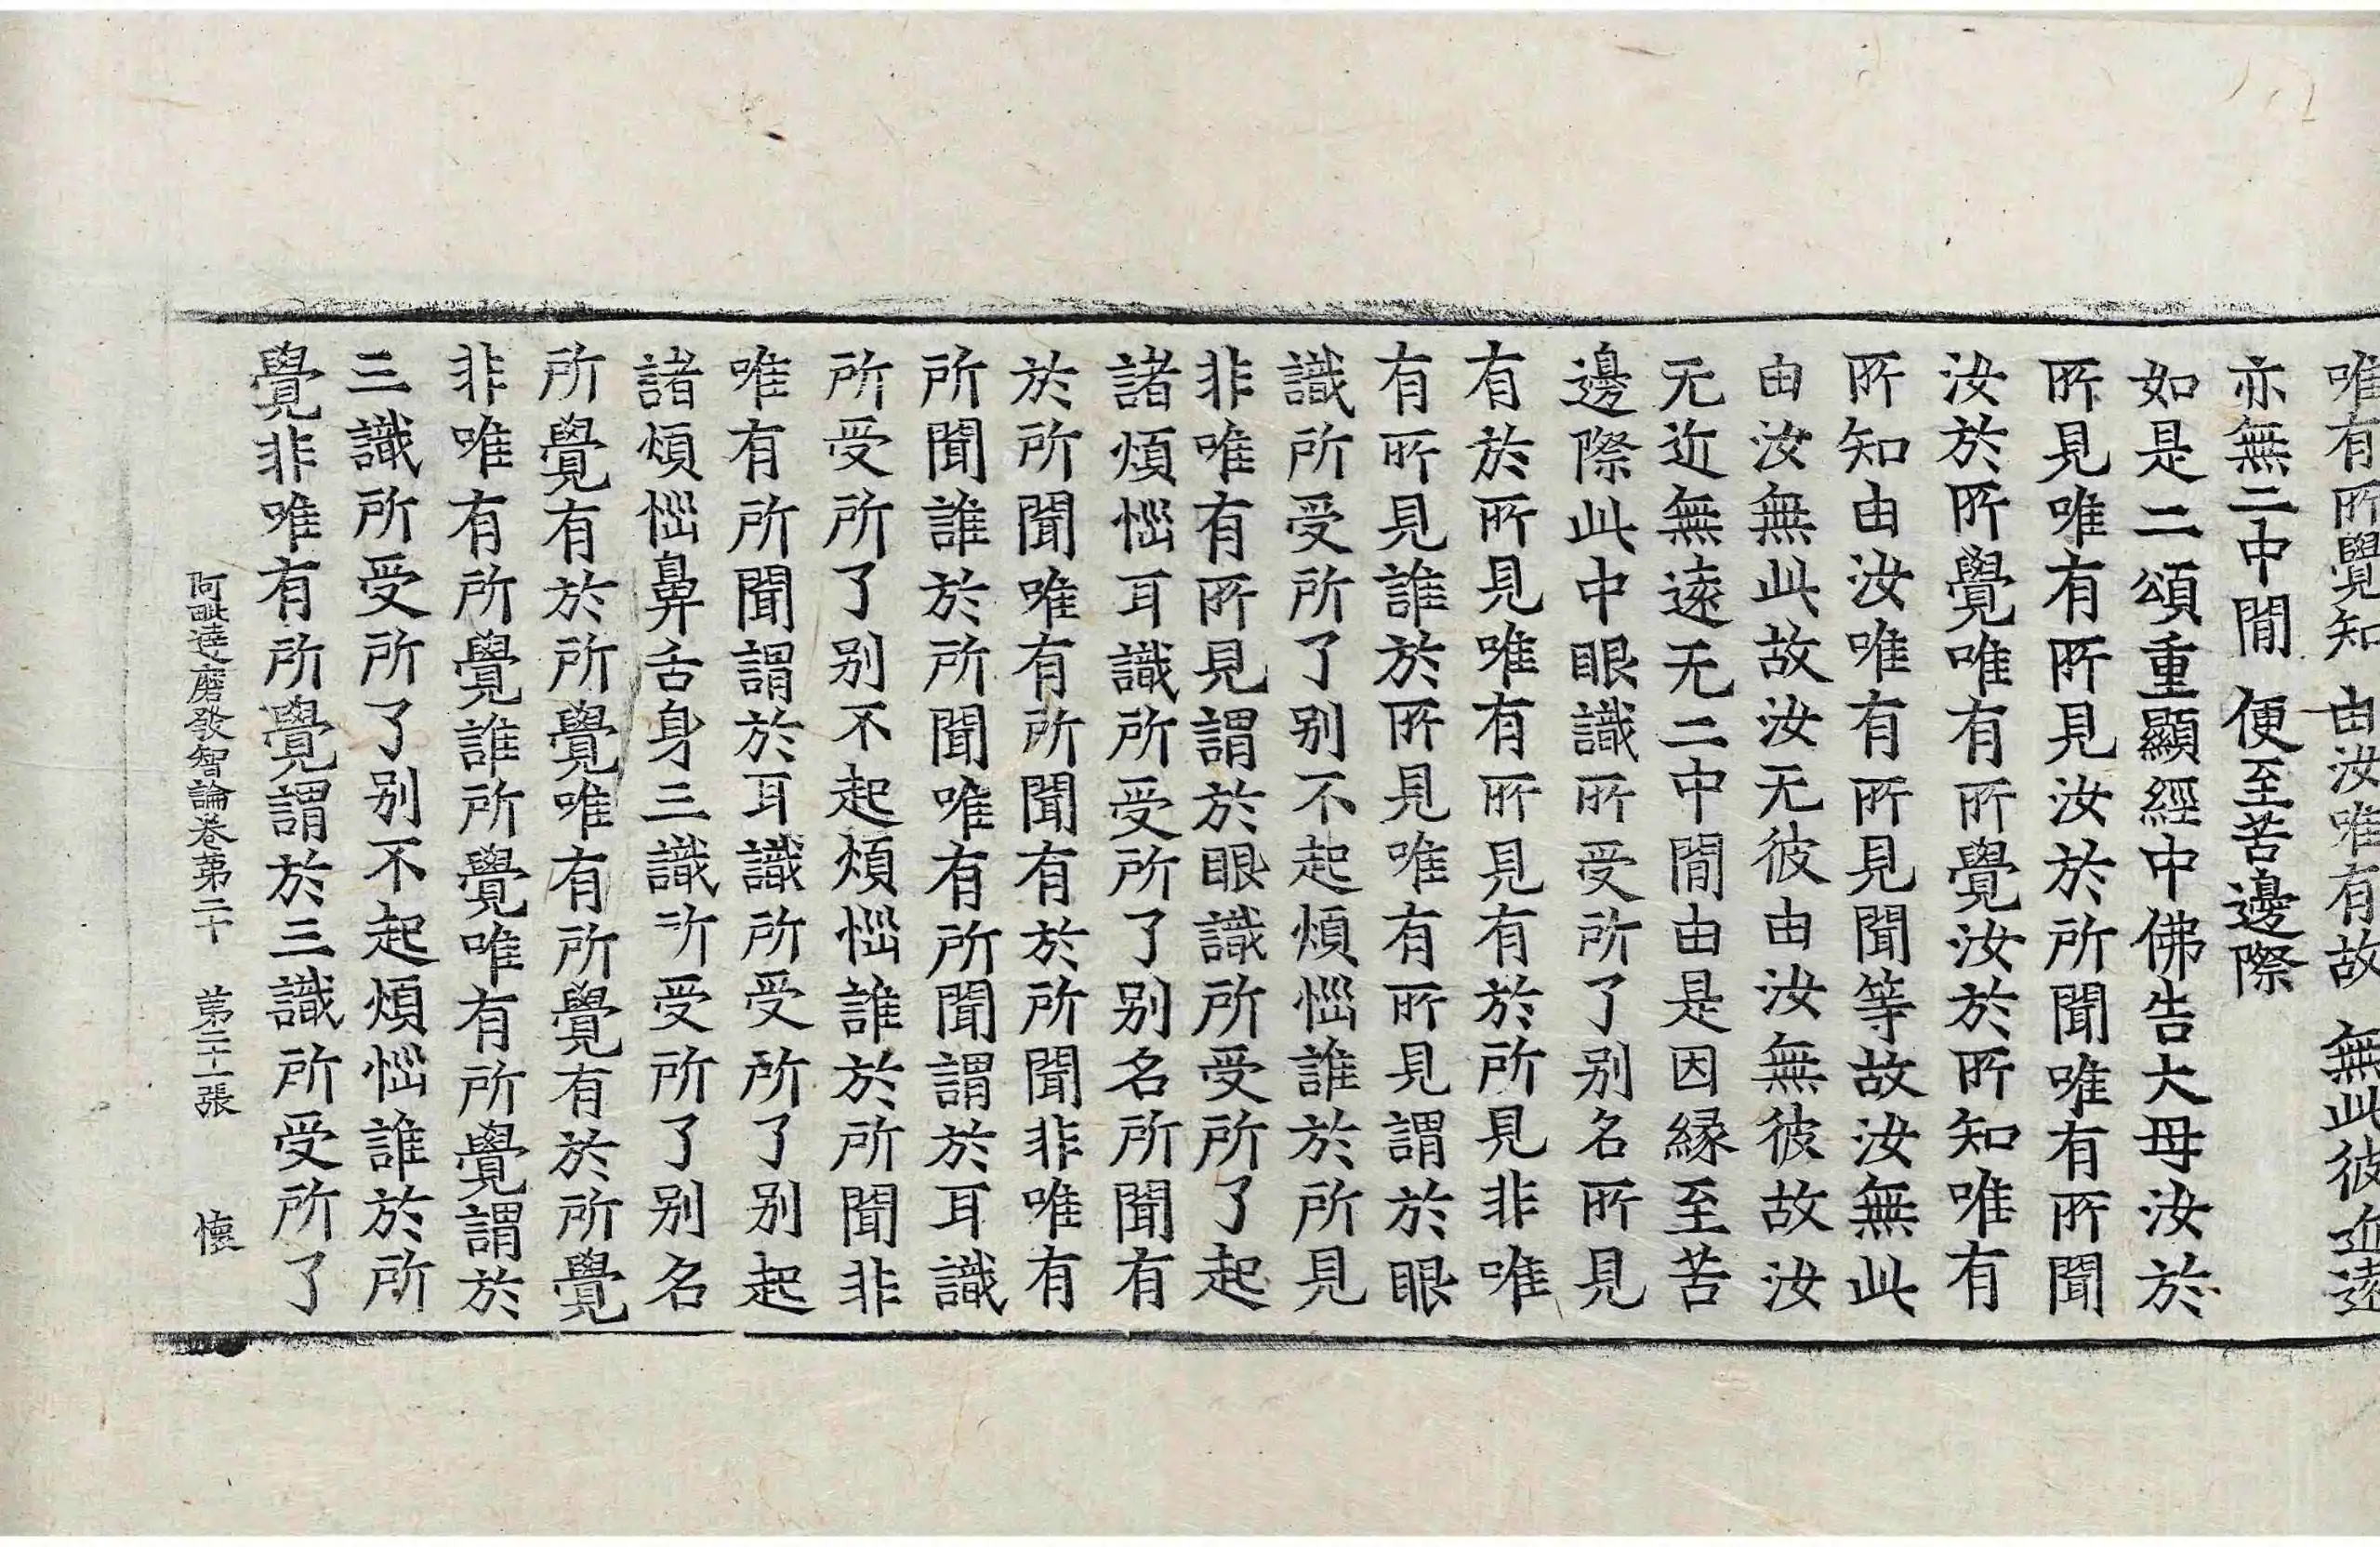 唯有所覺知　由汝唯有故　無此彼近遠
亦無二中間　便至苦邊際
如是二頌重顯經中佛告大母汝於
所見唯有所見汝於所聞唯有所聞
汝於所覺唯有所覺汝於所知唯有
所知由汝唯有所見聞等故汝無此
由汝無此故汝无彼由汝無彼故汝
无近無遠无二中間由是因緣至苦
邊際此中眼識所受所了别名所見
有於所見唯有所見有於所見非唯
有所見誰於所見唯有所見謂於眼
識所受所了别不起煩惱誰於所見
非唯有所見謂於眼識所受所了起
諸煩惱耳識所受所了别名所聞有
於所聞唯有所聞有於所聞非唯有
所聞誰於所聞唯有所聞謂於耳識
所受所了别不起煩惱誰於所聞非
唯有所聞謂於耳識所受所了别起
諸煩惱鼻舌身三識所受所了别名
所覺有於所覺唯有所覺有於所覺
非唯有所覺誰所覺唯有所覺謂於
三識所受所了别不起煩惱誰於所
覺非唯有所覺謂於三識所受所了
阿毗達磨發智論卷第二十　第二十一張　懷